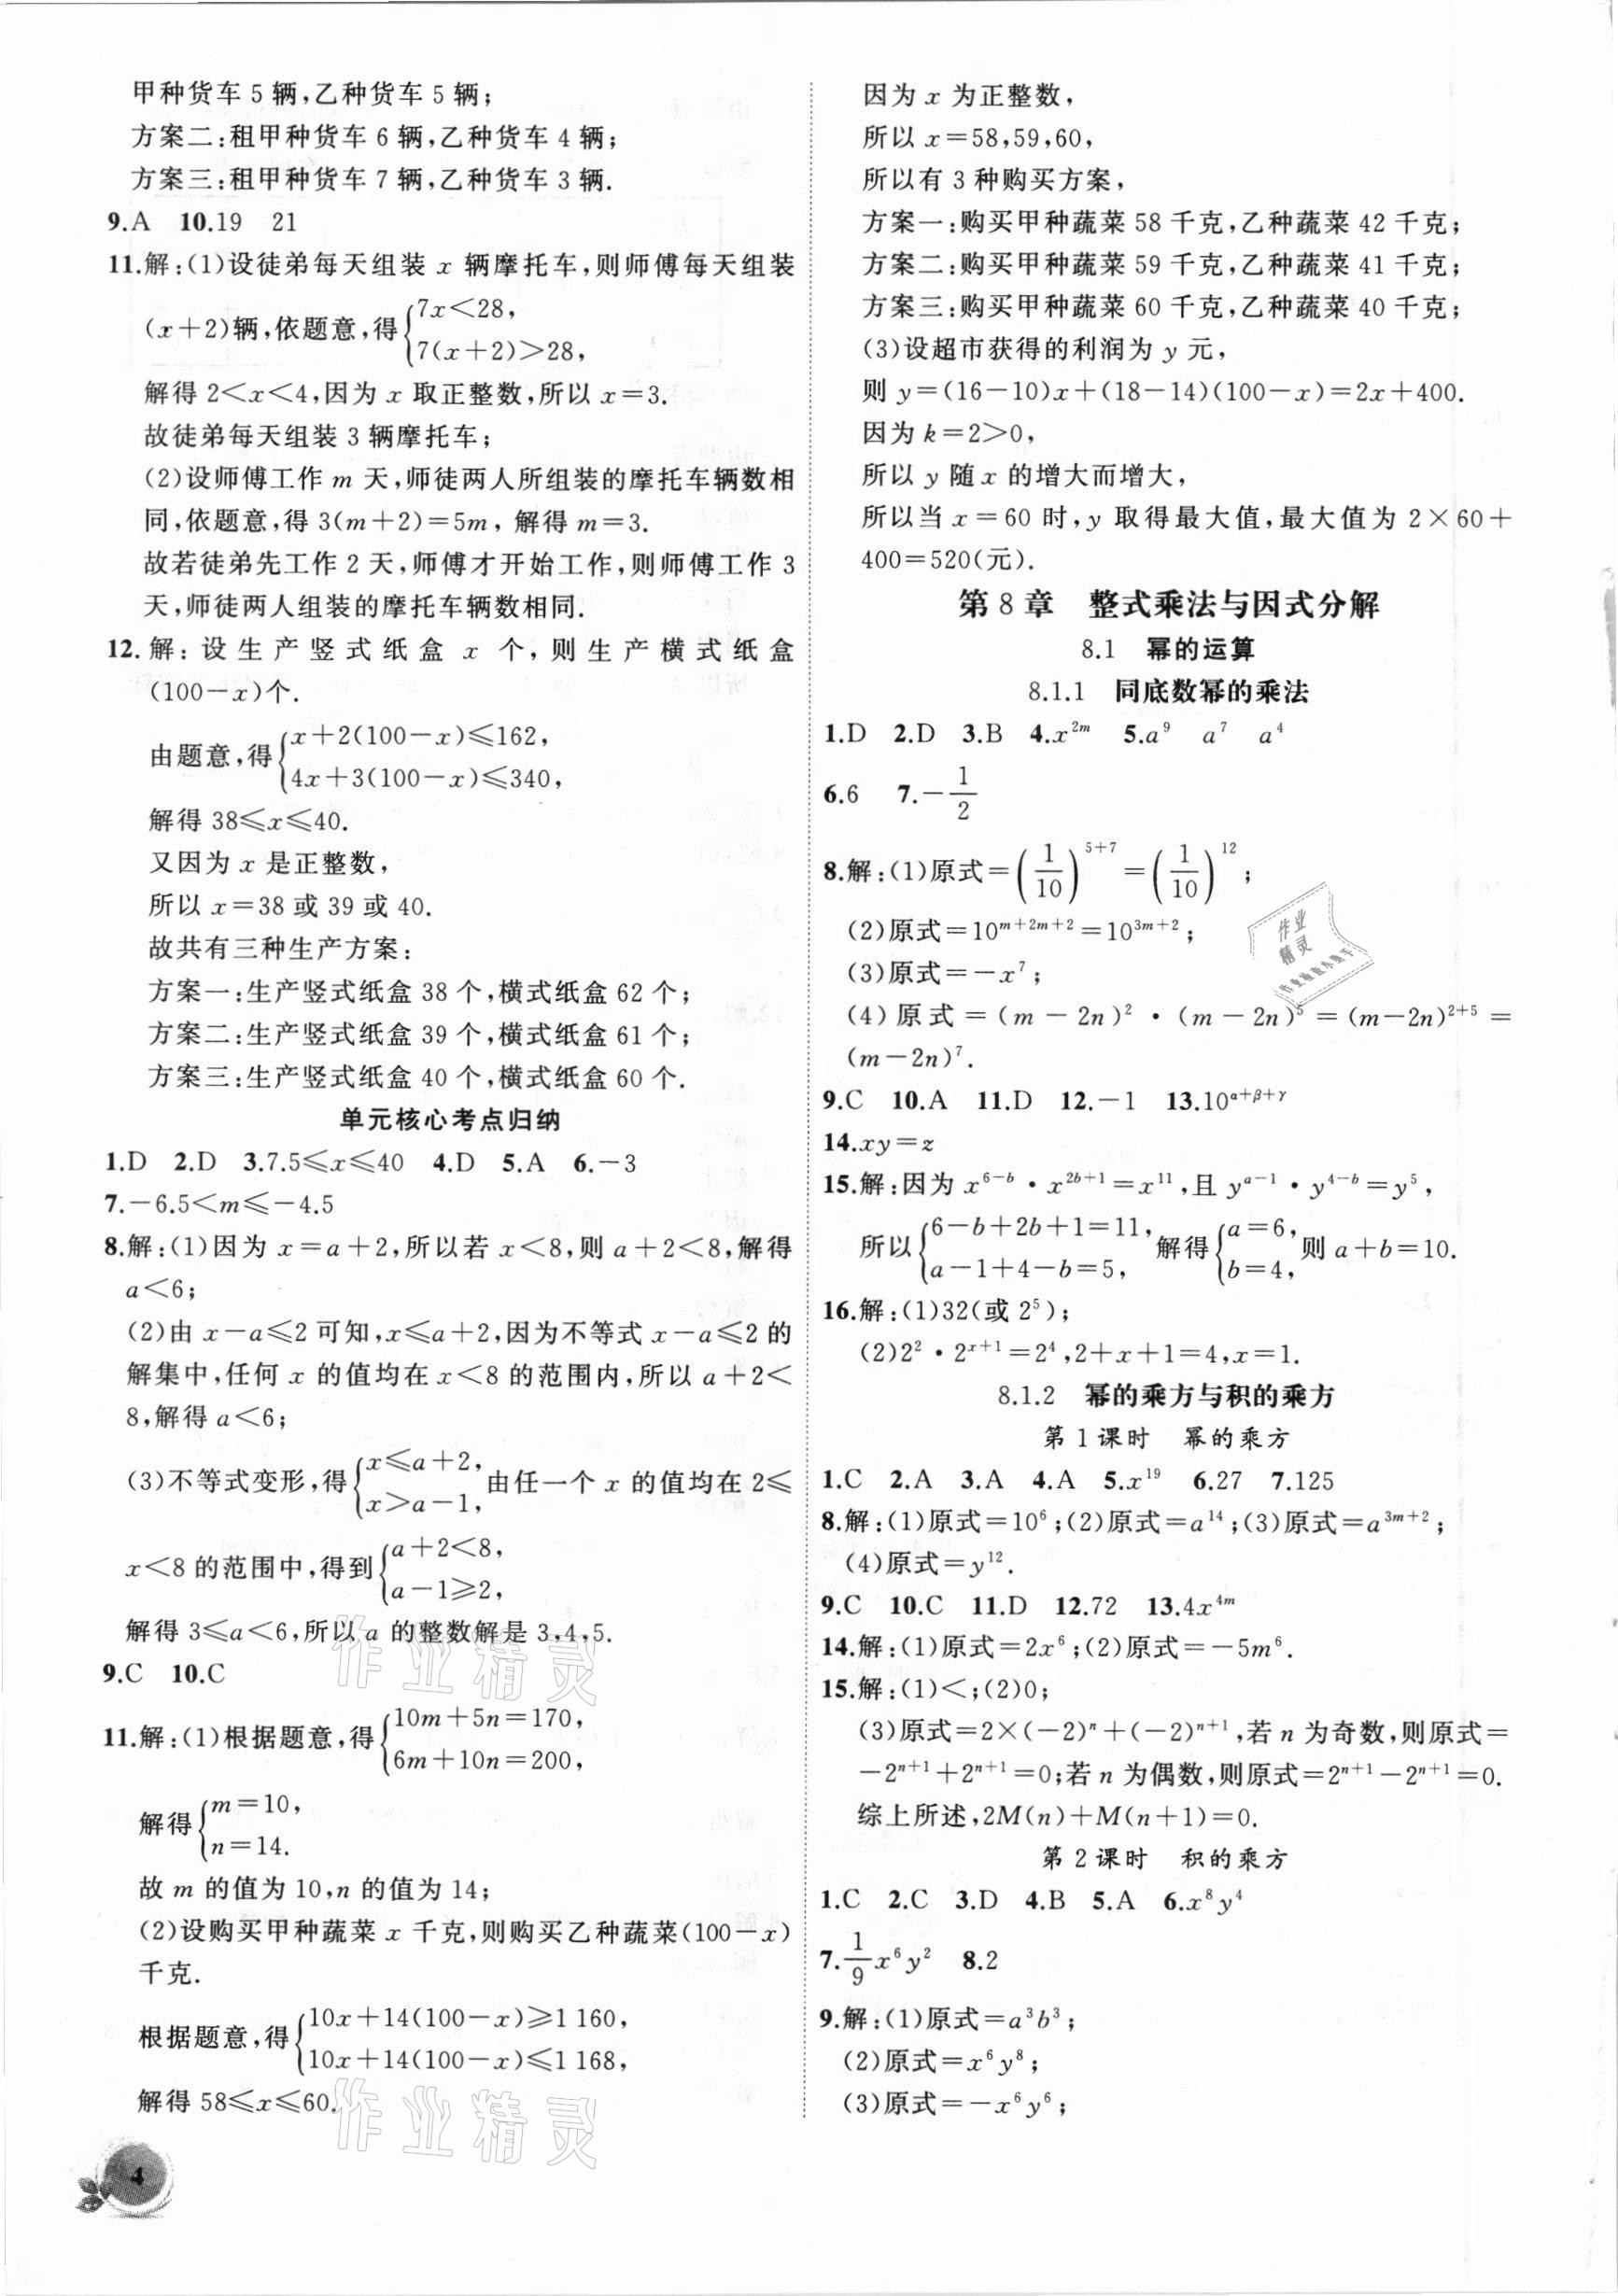 甲种货车 5 辆,乙种货车 5 辆;
方案二:租甲种货车 6 辆,乙种货车 4 辆;
方案三:租甲种货车 7 辆,乙种货车 3 辆.
9.A 10.19 21
11.解:(1)设徒弟每天组装 x 辆摩托车,则师傅每天组装
(x+2)辆,依题意,得{7x<28,
7(x+2)>28,
解得 2<x<4,因为 x 取正整数,所以 x=3.
故徒弟每天组装 3 辆摩托车;
(2)设师傅工作 m 天,师徒两人所组装的摩托车辆数相
同,依题意,得 3(m+2)=5m, 解得 m=3.
故若徒弟先工作 2 天,师傅才开始工作,则师傅工作 3
天,师徒两人组装的摩托车辆数相同.
12.解:设生产竖式纸盒 x 个,则生产横式纸盒
(100-x)个.
由题意,得{x+2(100-x)≤162,
4x+3(100-x)≤340,
解得 38≤x≤40.
又因为 x 是正整数,
所以 x=38 或 39 或 40.
故共有三种生产方案:
方案一:生产竖式纸盒 38 个,横式纸盒 62 个;
方案二:生产竖式纸盒 39 个,横式纸盒 61 个;
方案三:生产竖式纸盒 40 个,横式纸盒 60 个.
单元核心考点归纳
1.D 2.D 3.7.5≤x≤40 4.D 5.A 6.-3
7.-6.5<m≤-4.5
8.解:(1)因为 x=a+2,所以若 x<8,则 a+2<8,解得
a<6;
(2)由 x-a≤2 可知,x≤a+2,因为不等式 x-a≤2 的
解集中,任何 x 的值均在 x<8 的范围内,所以 a+2<
8,解得 a<6;
(3)不等式变形,得{x≤a+2,
x>a-1,由任一个 x 的值均在 2≤
x<8 的范围中,得到{a+2<8,
a-1≥2,
解得 3≤a<6,所以 a 的整数解是 3,4,5.
9.C 10.C
11.解:(1)根据题意,得{10m+5n=170,
6m+10n=200,
解得{m=10,
n=14.
故 m 的值为 10,n 的值为 14;
(2)设购买甲种蔬菜 x 千克,则购买乙种蔬菜(100-x)
千克.
根据题意,得{10x+14(100-x)≥1 160,
10x+14(100-x)≤1 168,
解得 58≤x≤60.
4
因为 x 为正整数,
所以 x=58,59,60,
所以有 3 种购买方案,
方案一:购买甲种蔬菜 58 千克,乙种蔬菜 42 千克;
方案二:购买甲种蔬菜 59 千克,乙种蔬菜 41 千克;
方案三:购买甲种蔬菜 60 千克,乙种蔬菜 40 千克;
(3)设超市获得的利润为 y 元,
则 y=(16-10)x+(18-14)(100-x)=2x+400.
因为 k=2>0,
所以 y 随 x 的增大而增大,
所以当 x=60 时,y 取得最大值,最大值为 2×60+
400=520(元).
第 8 章 整式乘法与因式分解
8.1 幂的运算
8.1.1 同底数幂的乘法
1.D 2.D 3.B 4.x^{2m} 5.a^9 a^7 a^4
6.6 7.-1/2
8.解:(1)原式=(1/10)^{5+7}=(1/10)^{12};
(2)原式=10^{m+2m+2}=10^{3m+2};
(3)原式=-x^7;
(4)原式=(m-2n)^2·(m-2n)^5=(m-2n)^{2+5}=
(m-2n)^7.
9.C 10.A 11.D 12.-1 13.10^{α+β+γ}
14.xy=z
15.解:因为 x^{6-b}·x^{2b+1}=x^{11},且 y^{a-1}·y^{4-b}=y^5,
所以{6-b+2b+1=11,
a-1+4-b=5,解得{a=6,
b=4,则 a+b=10.
16.解:(1)32(或 2^5);
(2)2^2·2^{x+1}=2^4,2+x+1=4,x=1.
8.1.2 幂的乘方与积的乘方
第 1 课时 幂的乘方
1.C 2.A 3.A 4.A 5.x^{19} 6.27 7.125
8.解:(1)原式=10^6;(2)原式=a^{14};(3)原式=a^{3m+2};
(4)原式=y^{12}.
9.C 10.C 11.D 12.72 13.4x^{4m}
14.解:(1)原式=2x^6;(2)原式=-5m^6.
15.解:(1)<;(2)0;
(3)原式=2×(-2)^n+(-2)^{n+1},若 n 为奇数,则原式=
-2^{n+1}+2^{n+1}=0;若 n 为偶数,则原式=2^{n+1}-2^{n+1}=0.
综上所述,2M(n)+M(n+1)=0.
第 2 课时 积的乘方
1.C 2.C 3.D 4.B 5.A 6.x^8y^4
7.1/9 x^6y^2 8.2
9.解:(1)原式=a^3b^3;
(2)原式=x^6y^8;
(3)原式=-x^6y^6;
作业精灵
作业精灵
作业
精灵